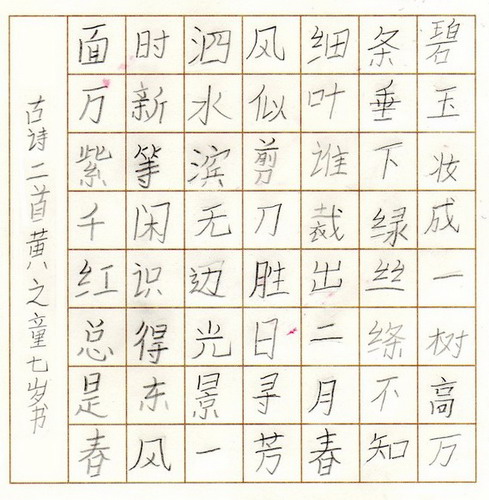 碧玉妆成一树高万
条垂下绿丝绦不知
细叶谁裁出二月春
风似剪刀胜日寻芳
泗水滨无边光景一
时新等闲识得东风
面万紫千红总是春
古诗二首黄之童七岁书